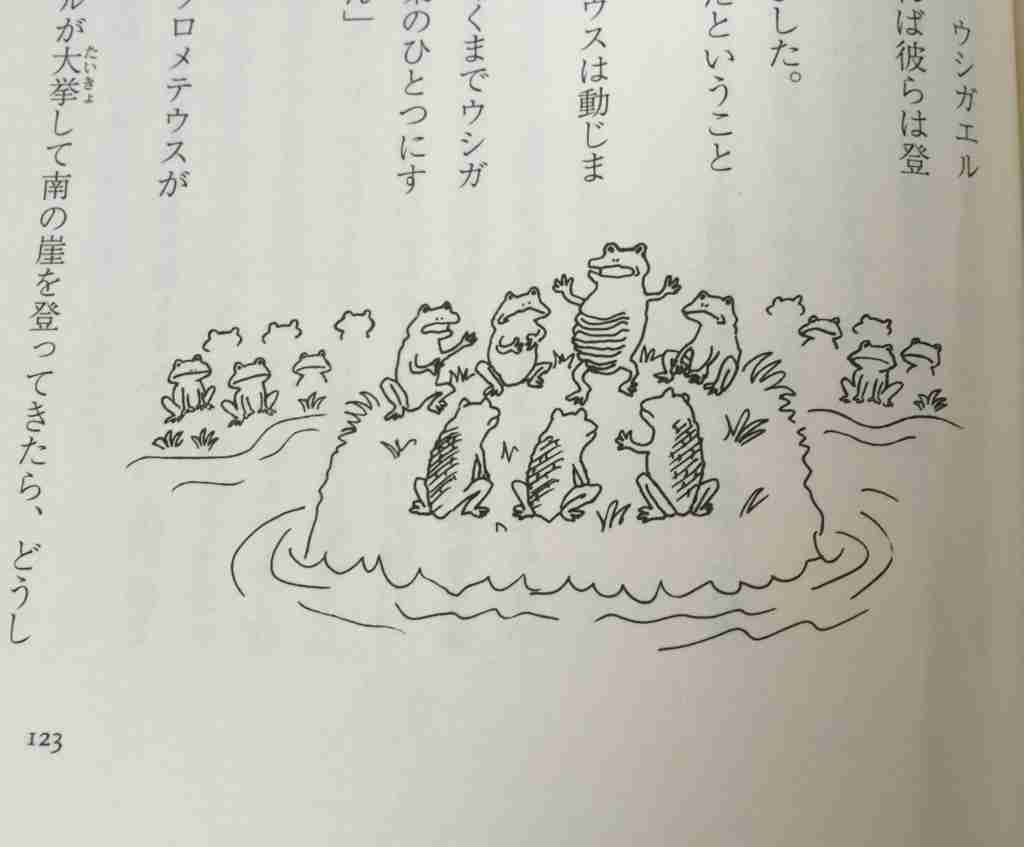 ウシガエル
んば彼らは登
した。
だということ
ウスは動じま
くまでウシガ
のひとつにす
ん」
ロメテウスが
ルが大挙して南の崖を登ってきたら、どうし
たいきょ
123